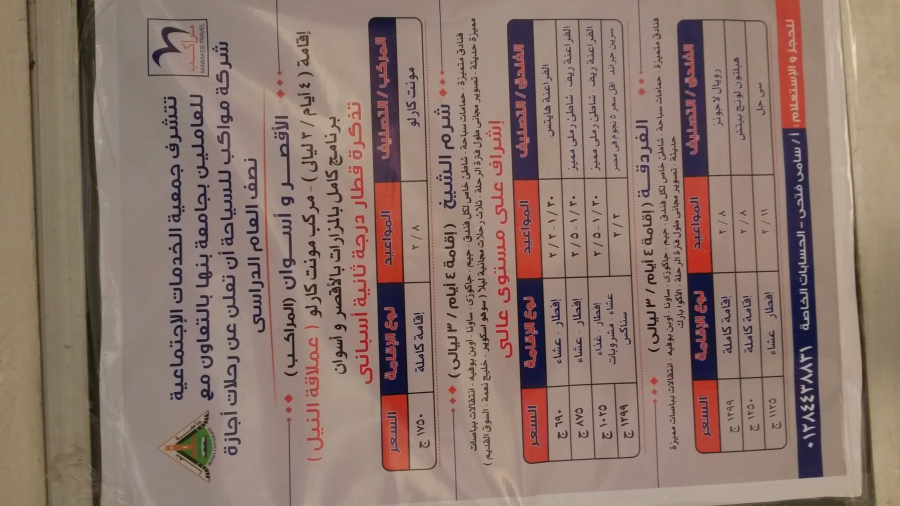 مراكب
MARAKEB TRAVEL
تتشرف جمعية الخدمات الإجتماعية
للعاملين بجامعة بنها بالتعاون مع
شركة مواكب للسياحة أن تعلن عن رحلات أجازة
نصف العام الدراسى
الأقصر و أسوان (المراكب)
إقامة (٤ أيام / ٣ ليالى) - مركب مونت كارلو (عملاقة النيل)
برنامج كامل بالمزارات بالأقصر و أسوان
تذكرة قطار درجة ثانية أسبانى
المركب / التصنيف المواعيد نوع الإقامة السعر
مونت كارلو ٢/٨ إقامة كاملة ١٧٥٠ ج
شرم الشيخ (إقامة ٤ أيام / ٣ ليالى)
فنادق متميزة - حمامات سباحة - شاطئ خاص لكل فندق - جيم - جاكوزى - ساونا - أوبن بوفيه - انتقالات بباصات
مميزة حديثة - تصوير مجانى طول فترة الرحلة - ثلاث رحلات مجانية ليلا (سوهو اسكوير - خليج نعمة - السوق القديم)
إشراف على مستوى عالى
الفندق / التصنيف المواعيد نوع الإقامة السعر
الفراعنة هايتس ١/٣٠ - ٢/٢ إفطار - عشاء ٦٩٠ ج
الفراعنة ريف - شاطئ رملى مميز ١/٣٠ - ٢/٥ إفطار - عشاء ٨٧٥ ج
الفراعنة ريف - شاطئ رملى مميز ١/٣٠ - ٢/٥ إفطار - غذاء ١٠٢٥ ج
سرين جراند - اقل سعر ٥ نجوم فى مصر ٢/٢ عشاء - مشروبات سناكس ١٢٩٩ ج
الغردقة (إقامة ٤ أيام / ٣ ليالى)
فنادق متميزة - حمامات سباحة - شاطئ خاص لكل فندق - جيم - جاكوزى - ساونا - أوبن بوفيه - انتقالات بباصات مميزة
حديثة - تصوير مجانى طول فترة الرحلة - الأكوا بارك
الفندق / التصنيف المواعيد نوع الإقامة السعر
رويال لاجونز ٢/٨ إقامة كاملة ١٢٩٩ ج
هيلتون لونج بيتش ٢/٨ إقامة كاملة ١٢٥٠ ج
سى جل ٢/١١ إفطار - عشاء ١١٢٥ ج
للحجز و الإستعلام : أ / سامى فتحى - الحسابات الخاصة ٠١٢٨٤٤٣٨٨٣١